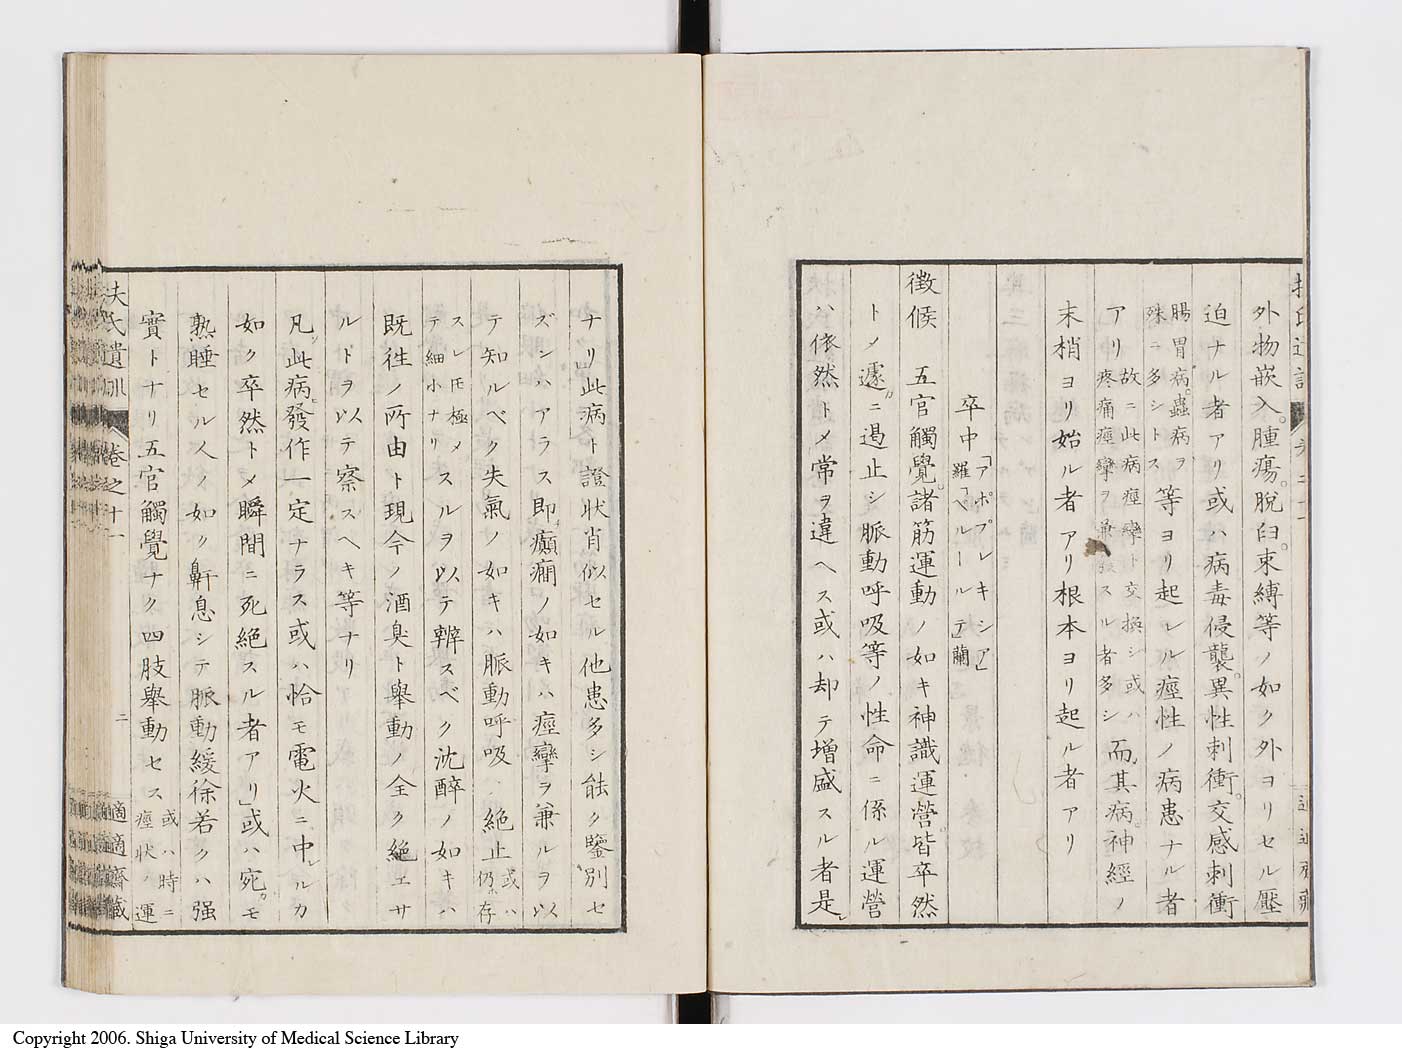 外物嵌入。腫瘍。脱臼。束縛等ノ如ク外ヨリセル壓
迫ナル者アリ或ハ病毒侵襲。異性刺衝。交感刺衝
腸胃病。蟲病ヲ
殊ニ多シトス
等ヨリ起レル痙性ノ病患ナル者
アリ
故ニ此病痙攣ト交換シ或ハ
疼痛痙攣ヲ兼發スル者多シ
而其病。神經ノ
末梢ヨリ始ル者アリ根本ヨリ起ル者アリ
卒中
「アポプレキシア」
羅「ベルールテ」蘭
徴候 五官觸覺。諸筋運動ノ如キ神識運營。皆卒然
トメ遽ニ遏止シ脈動呼吸等ノ性命ニ係ル運營
ハ依然トメ常ヲ違ヘス或ハ却テ増盛スル者是
ナリ此病ト證状肖似セル他患多シ能ク鑒別セ
ズンハアラス即癲癇ノ如キハ痙攣ヲ兼ルヲ以
テ知ルベク失氣ノ如キハ脈動呼吸、絶止
或ハ
仍ホ存
スレ𪜈極メ
テ細小ナリ
スルヲ以テ辨スベク沈醉ノ如キハ
既徃ノ所由ト現今ノ酒臭ト舉動ノ全ク絶エサ
ルトヲ以テ察スヘキ等ナリ
凡此病發作一定ナラス或ハ恰モ電火ニ中ルカ
如ク卒然トメ瞬間ニ死絶スル者アリ」或ハ宛モ
熟睡セル人ノ如ク鼾息シテ脈動緩徐若クハ强
實トナリ五官觸覺ナク四肢舉動セス
或ハ時ニ
痙狀ノ運
扶氏遺訓 卷之十一
二
適適齋藏
Copyright 2006. Shiga University of Medical Science Library